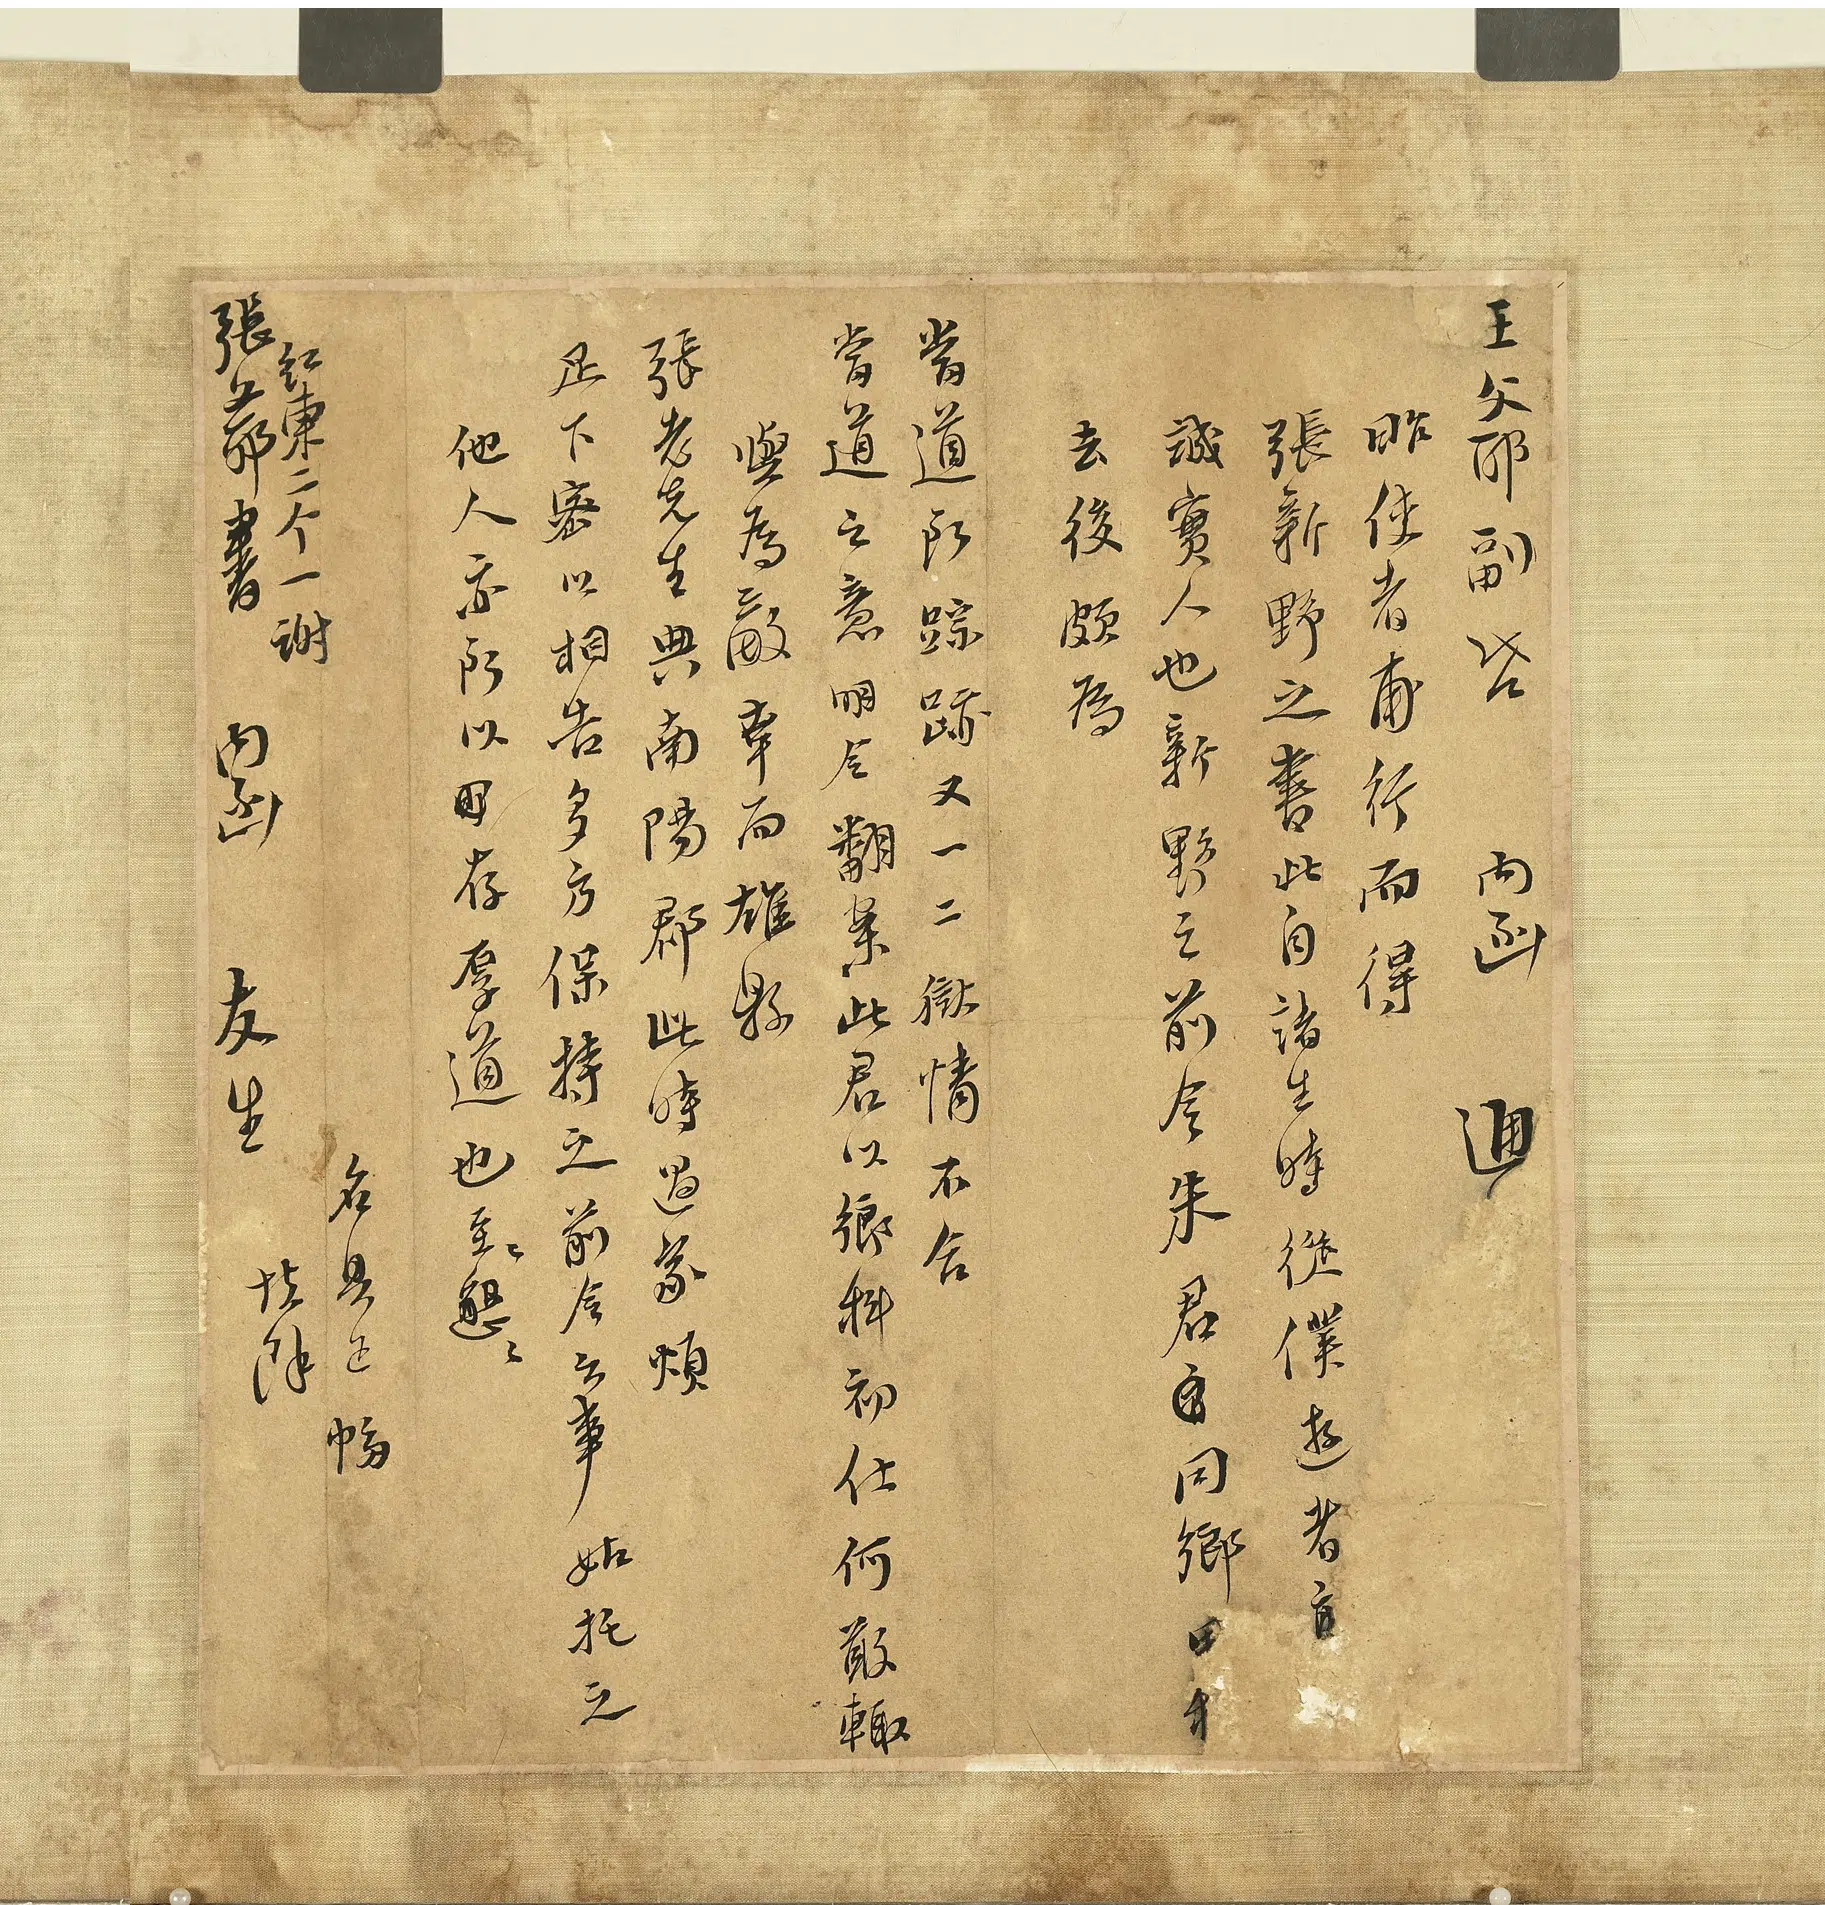 王父耶副啓 內函 逥
昨使者甫行而得
張新野之書此自諸生時從僕遊者
誠實人也新野之前令朱君同鄉
去後頗為
當道所蹤跡又一二獄情不合
當道之意明令翻案此君以鄉科初仕何敢輒
輿為敵幸而雄縣
張老先生典南陽郡此時過家煩
足下密以相告多方保持之前令之事姑托之
他人亦所以因存厚道也至〻懇〻
名具正幅
紅柬二个一謝
張父耶書 內函 友生